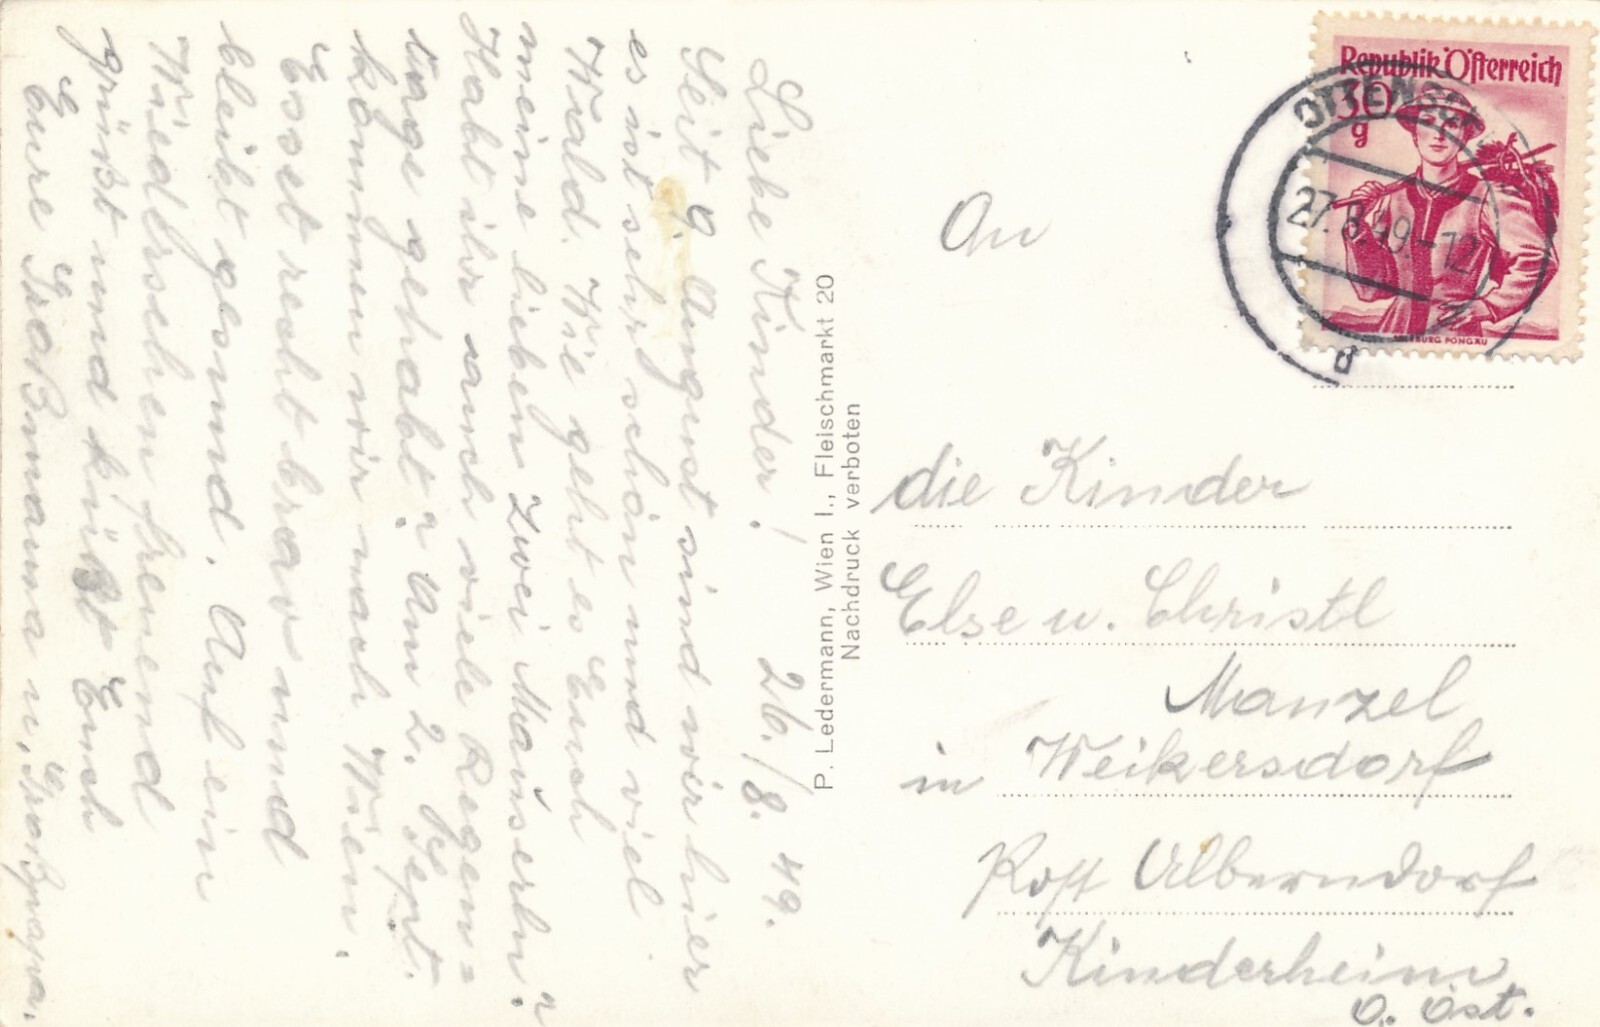 Liebe Kinder! 26./8. 49.
Seit 9. August sind wir hier
es ist sehr schön und viel
Wald. Wie geht es Euch
meine lieben Zwei Mauserln?
Habt ihr auch viele Regen=
tage gehabt? Am 2. Sept.
kommen wir nach Wien.
Esset recht brav und
bleibt gesund. Auf ein
Wiedersehen freuend
grüßt und küßt Euch
Eure Großmama u. Großpapa.
P. Ledermann, Wien I., Fleischmarkt 20
Nachdruck verboten
Republik Österreich
30
g
SALZBURG PONGAU
27.8.49.-12
d
An
die Kinder
Else u. Christl
Manzel
in Weikersdorf
Post Alberndorf
Kinderheim
O. Öst.